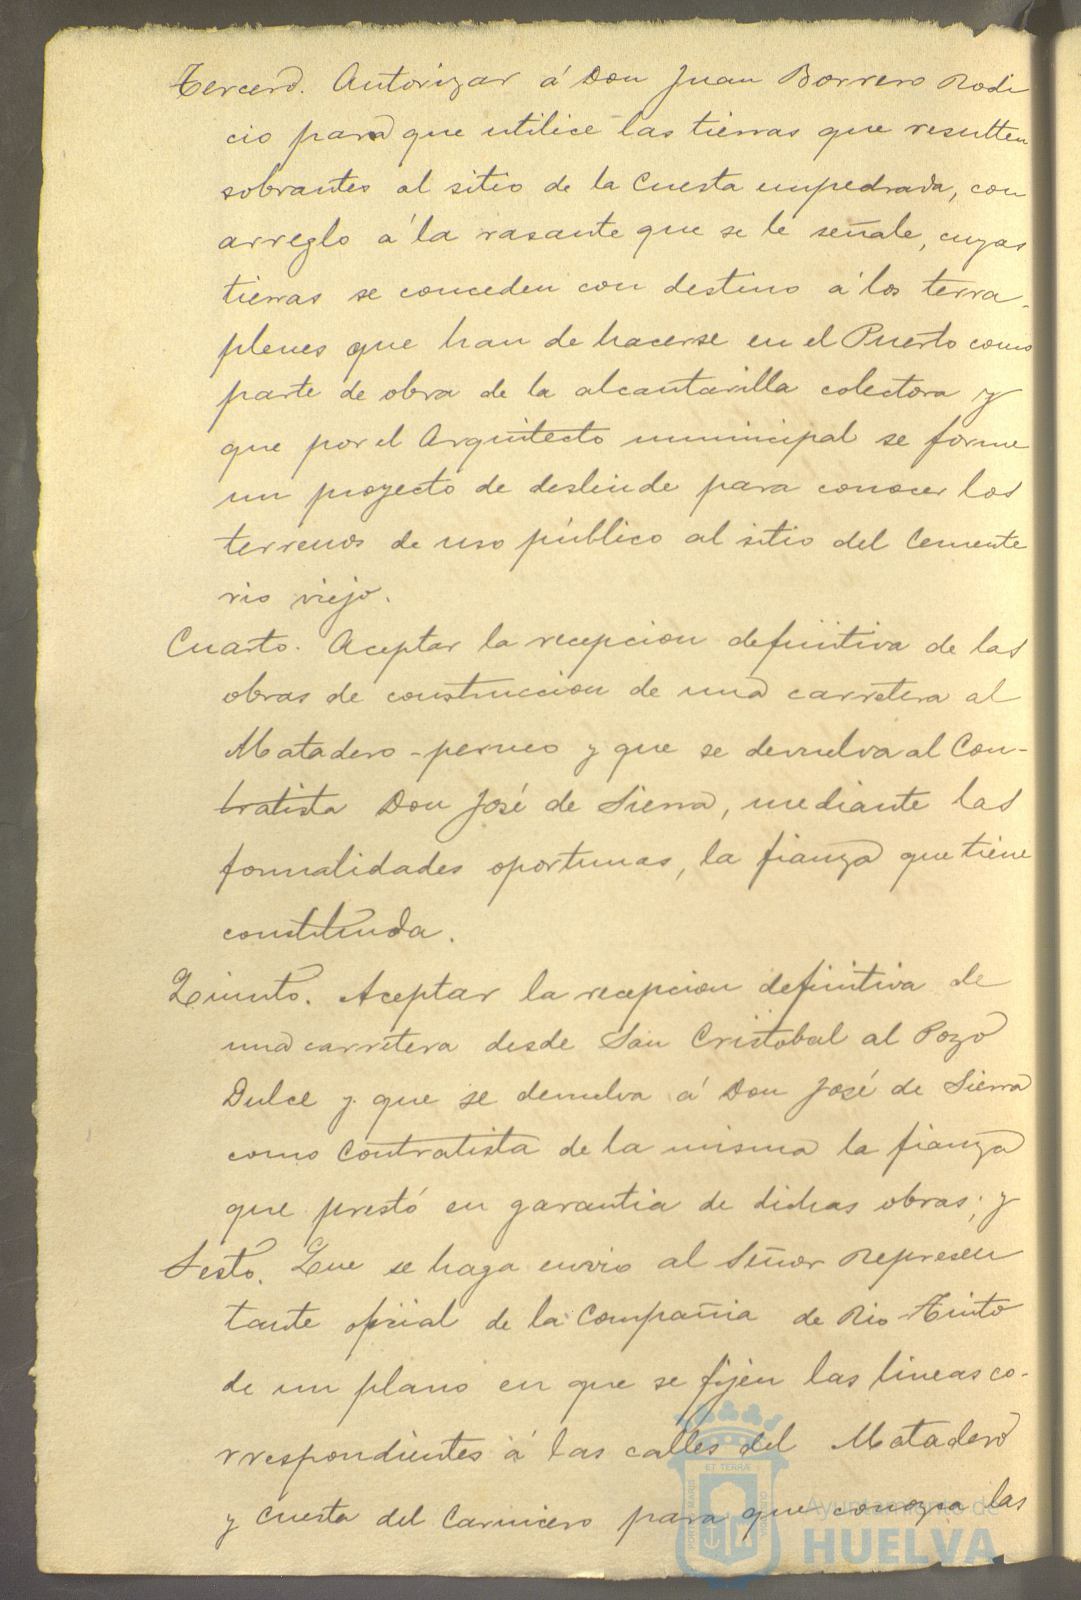 Tercero. Autorizar á Don Juan Borrero Rodi
cio para que utilice las tierras que resulten
sobrantes al sitio de la Cuesta empedrada, con
arreglo á la rasante que se le señale, cuyas
tierras se conceden con destino á los terra-
plenes que han de hacerse en el Puerto como
parte de obra de la alcantarilla colectora y
que por el Arquitecto municipal se forme
un proyecto de deslinde para conocer los
terrenos de uso público al sitio del Cemente
rio viejo.
Cuarto. Aceptar la recepcion definitiva de las
obras de construccion de una carretera al
Matadero-perneo y que se devuelva al Con-
tratista Don José de Sierra, mediante las
formalidades oportunas, la fianza que tiene
constituida.
Quinto. Aceptar la recepcion definitiva de
una carretera desde San Cristobal al Pozo
Dulce y que se devuelva á Don José de Sierra
como Contratista de la misma la fianza
que prestó en garantia de dichas obras; y
Sesto. Que se haga envio al Señor Represen
tante oficial de la Compañia de Rio-Tinto
de un plano en que se fijen las lineas co-
rrespondientes á las calles del Matadero
y Cuesta del Carnicero para que conozca las
PORTUS MARIS ET TERRÆ CUSTODIA
Ayuntamiento de
HUELVA